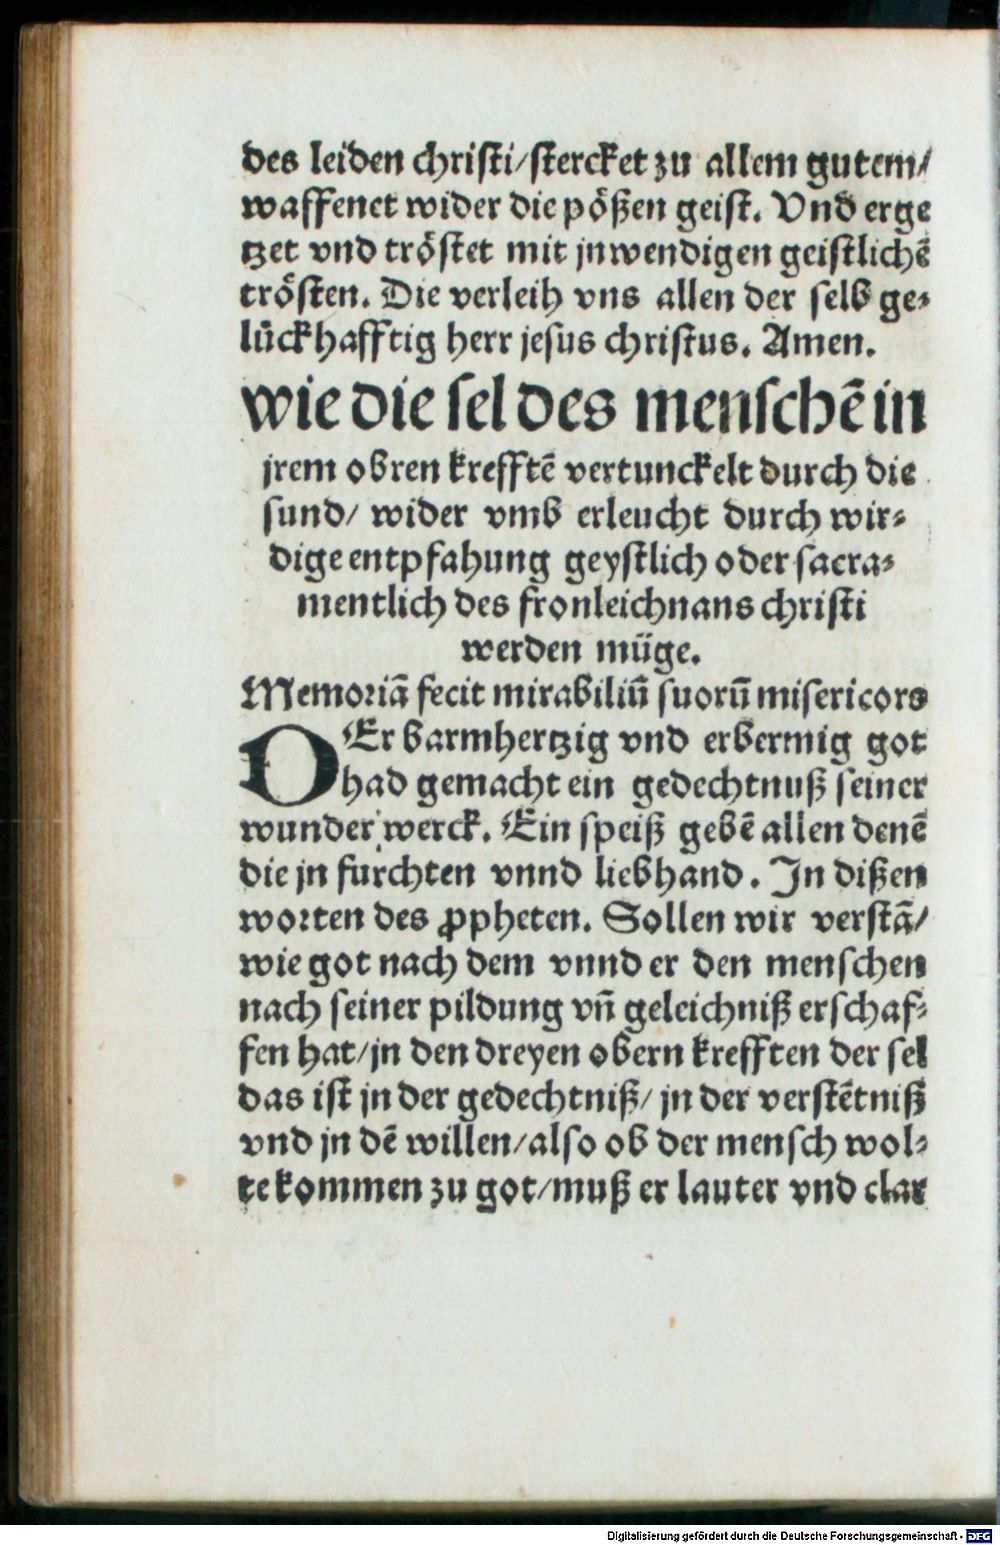 des leiden christi/stercket zu allem gutem/
waffenet wider die pößen geist. Vnd erge
tzet vnd tröstet mit jnwendigen geistlichē
trösten. Die verleih vns allen der selb ge⸗
lückhafftig herr jesus christus. Amen.
wie die sel des menschē in
jrem obren krefftē vertunckelt durch die
sund/ wider vmb erleucht durch wir⸗
dige entpfahung geystlich oder sacra⸗
mentlich des fronleichnans christi
werden müge.
Memoriā fecit mirabiliū suorū misericors
DEr barmhertzig vnd erbermig got
had gemacht ein gedechtnuß seiner
wunder werck. Ein speiß gebē allen denē
die jn furchten vnnd liebhand. In dißen
worten des ꝓpheten. Sollen wir verstā/
wie got nach dem vnnd er den menschen
nach seiner pildung vn̄ geleichniß erschaf⸗
fen hat/jn den dreyen obern krefften der sel
das ist jn der gedechtniß/ jn der verstētniß
vnd jn dē willen/also ob der mensch wol⸗
te kommen zu got/muß er lauter vnd clar
Digitalisierung gefördert durch die Deutsche Forschungsgemeinschaft - DFG